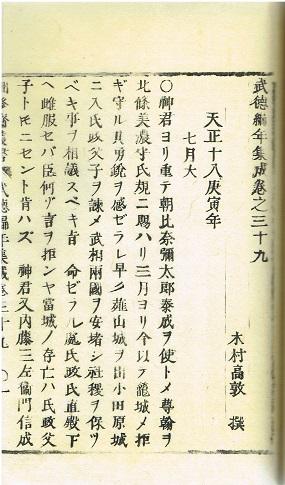 武徳編年集成卷之三十九
木村高敦 撰
天正十八庚寅年
七月大
〇神君ヨリ重テ朝比奈彌太郎泰成ヲ使トメ尊翰ヲ
北條美濃守氏規ニ賜ハリ三月ヨリ今以テ籠城メ拒
ギ守ル其勇銳ヲ感ゼラレ早ク韮山城ヲ出小田原城
ニ入氏政父子ヲ諫メ武相兩國ヲ安堵シ社稷ヲ保ツ
ベキ事ヲ相議スベキ旨 命ゼラル處氏政氏直殿下
ヘ雌服セバ臣何ゾ言ヲ拒ンヤ當城ノ存亡ハ氏政父
子トモニセント肯ハズ 神君又内藤三左衞門信成
武徳編年集成卷三十九 〇一